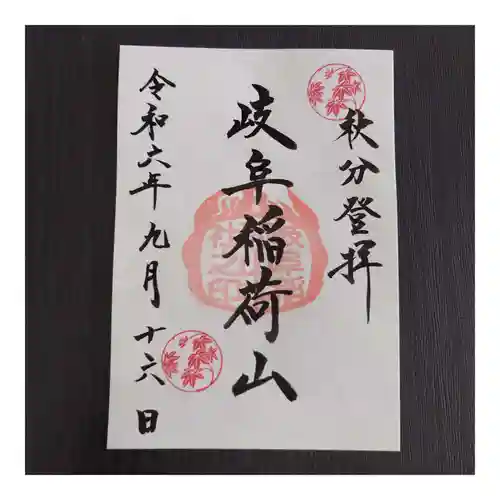 秋分登拝
岐阜稲荷山
令和六年九月十六日